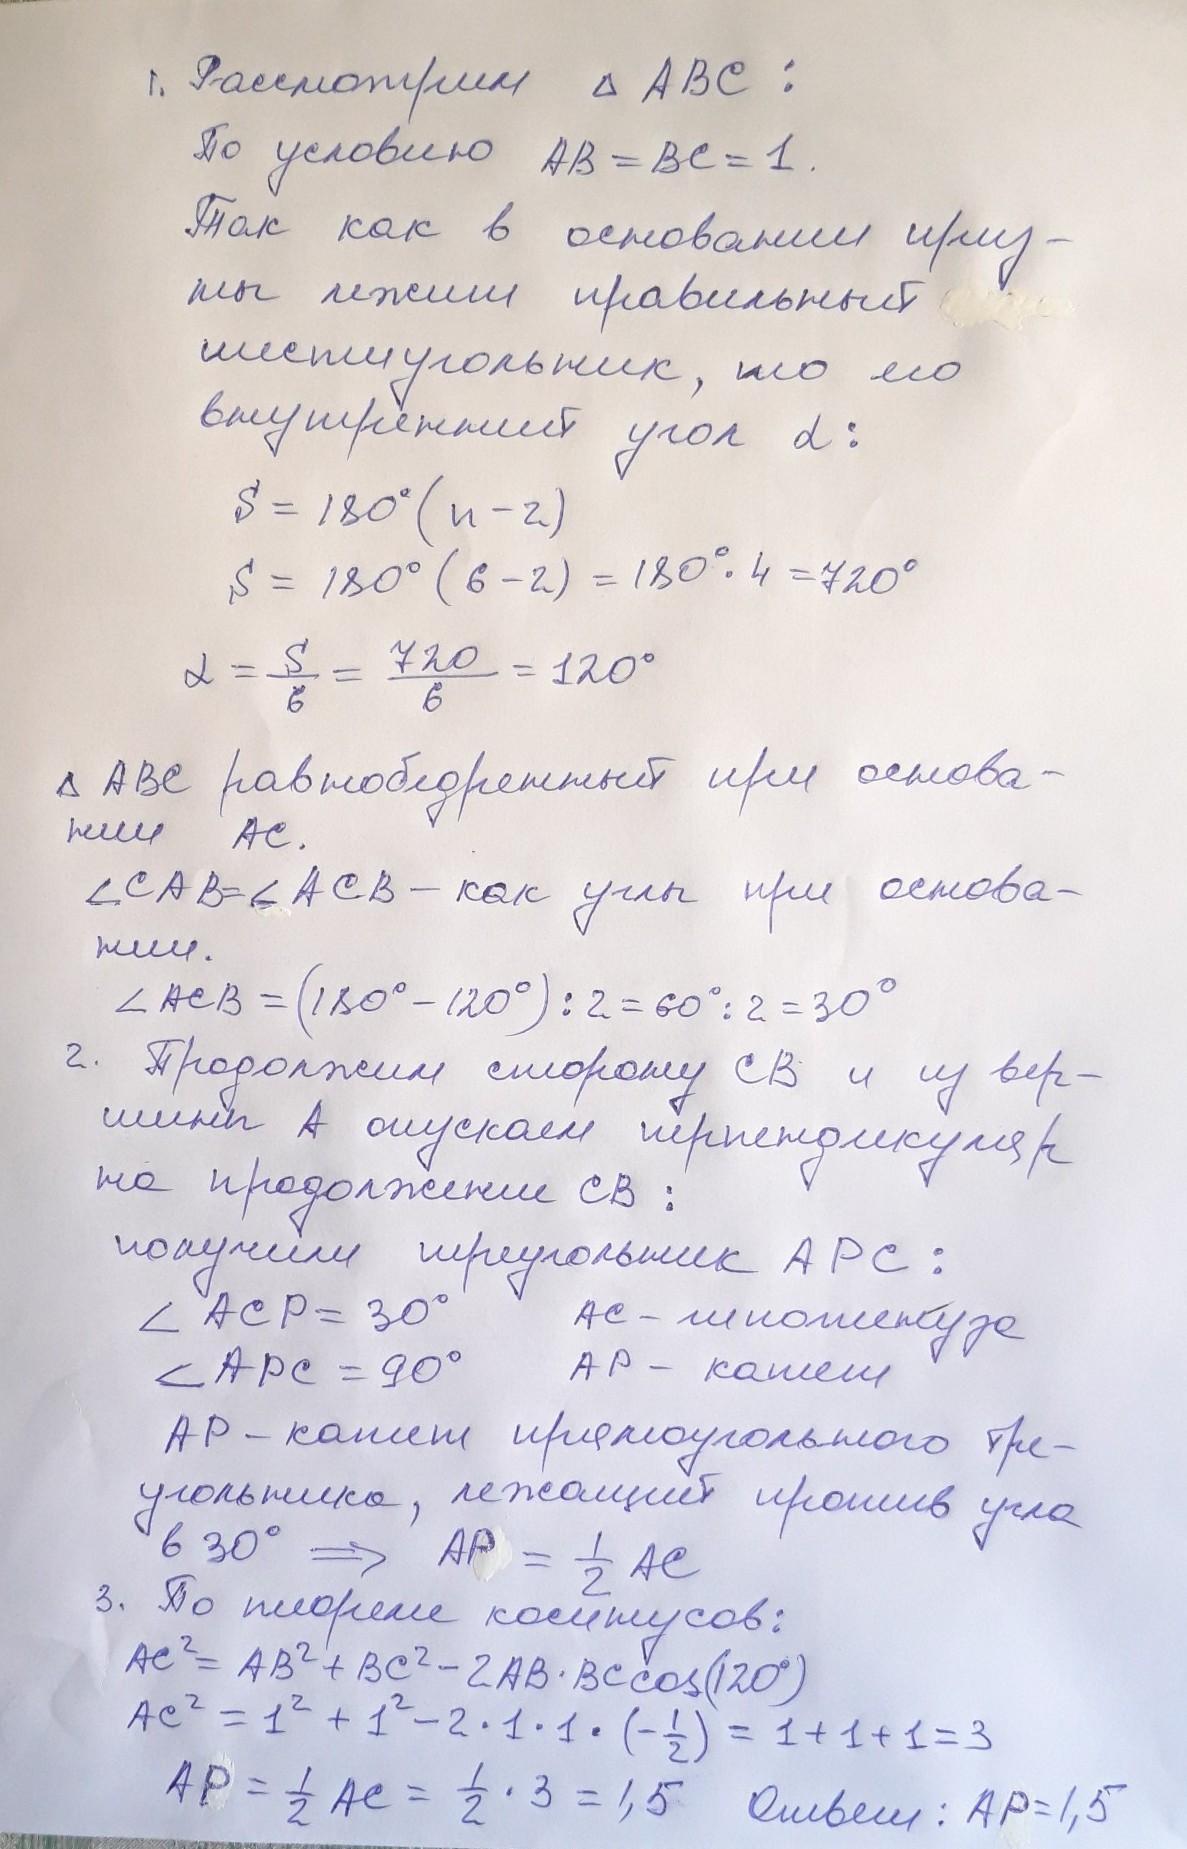 1. Рассмотрим △ ABC :
По условию AB = BC = 1.
Так как в основании приз-
мы лежит правильный
шестиугольник, то его
внутренний угол α :
S = 180°(n - 2)
S = 180° (6 - 2) = 180° · 4 = 720°
α = S/6 = 720/6 = 120°
△ ABC равнобедренный при основа-
нии AC.
∠CAB = ∠ACB – как углы при основа-
нии.
∠ACB = (180° - 120°) : 2 = 60° : 2 = 30°
2. Продолжим сторону CB и из вер-
шины A опускаем перпендикуляр
на продолжение CB :
получили треугольник APC :
∠ ACP = 30° AC - гипотенуза
∠ APC = 90° AP - катет
AP – катет прямоугольного тре-
угольника, лежащий против угла
в 30° ⟹ AP = 1/2 AC
3. По теореме косинусов:
AC² = AB² + BC² - 2AB · BC cos(120°)
AC² = 1² + 1² - 2 · 1 · 1 · (-1/2) = 1 + 1 + 1 = 3
AP = 1/2 AC = 1/2 · 3 = 1,5 Ответ : AP = 1,5